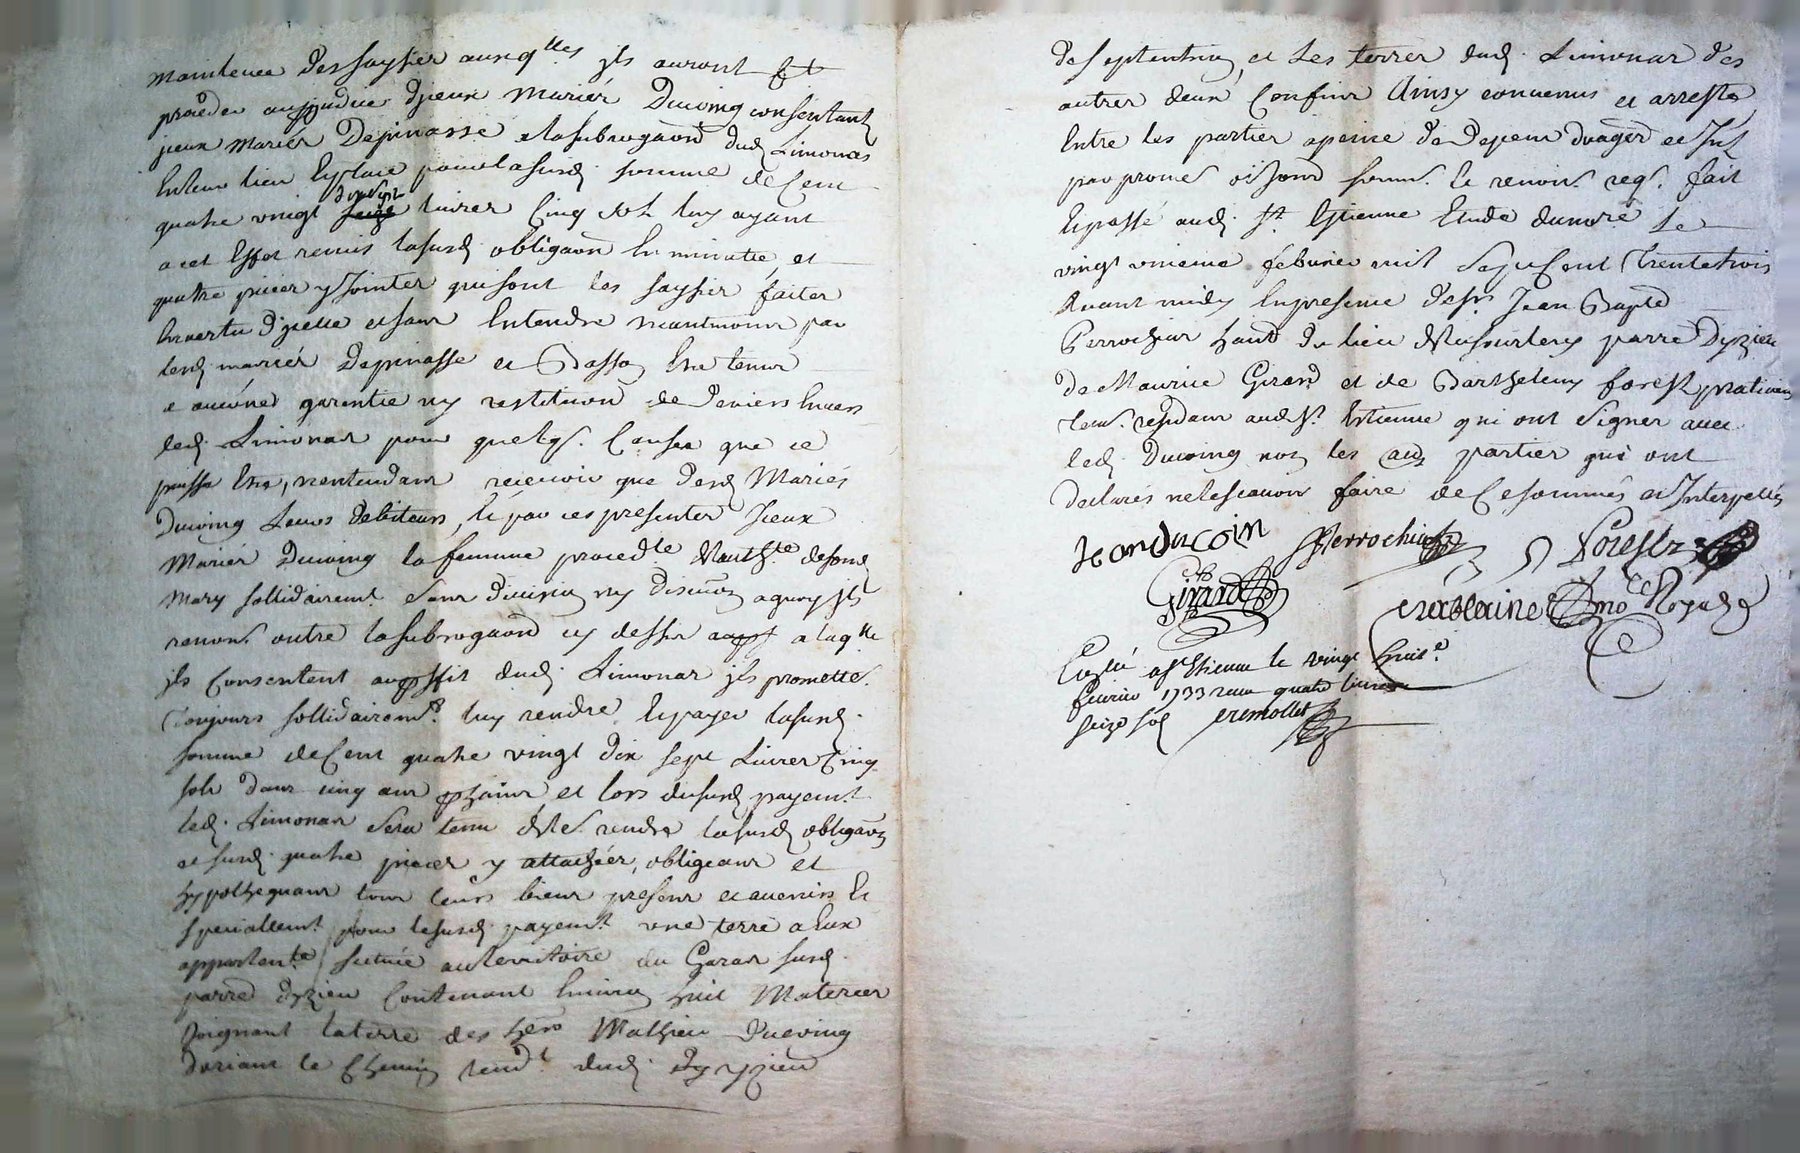 maintenue des saysies ausq.lles jls auront ft
proceder au prejudice djceux mariés Ducoing consentant
jceux mariés Depinasse a la subrogaōn dud. Limonas
en leur lieu Explace pour lasusd. somme de Cent
quatre vingt seize dix sept livres Cinq sols luy ayant
a cet Effet remis lasusd. obligaōn En minutte et
quatre pieces y Jointes quisont les saysies faites
En vertu djcelle et sans Entendre neantmoins par
lesd. mariés Depinasse et Basso Etre tenus
a aucune garentie ny restitution de Deniers Envers
led. Limonas pour quelq. Causes que ce
puisse Etre, nentendans recevoir que desd. Mariés
Ducoing Leurs debiteurs, Et par ces presentes Jceux
Mariés Ducoing la femme proced.te de sond.
Mary sollidairemt. sans division ny discution aquoy jls
renons. outre la subrogaōn cy dessus a laq.lle
jls Consentent au proffit dud. Limonas jls promette.
Toujours sollidairemt. luy rendre Expayer lasusd.
somme de Cent quatre vingt dix sept Livres Cinq
sols dans cinq ans et lors dususd. payemt.
led. Limonas sera tenu de les. rendre lasusd. obligaōn
et susd. quatre pieces y attachées, obligeans et
hypothequans tous leurs biens presens et avenirs Et
speciallemt. pour lesusd. payemt. une terre a Eux
appartente. scituée au territoire du Garas susd.
parre. Dyzieu Contenant Environ huit Materées
Joignant laterre des hers. Mathieu Ducoing
dorians le Chemin tend.t dud. Dyzieu
de septentrion, et Les terres dud. Limonas des
autres deux Confins Ainsy convenus et arresté
Entre les parties apeine de Depens domages et Jnt.
par promes. oisson soum. Et renon. req. fait
Expassé aud. St. Etienne Etude du no.re Le
vingt unieme febvrier mil Sept Cent Trente trois
avant midy En presence de sr. Jean Bapte.
Perrochiar hant. du lieu de parre. Dyzieu
de Maurice Girard et de Barthelemy forest praticiens
tous. residans aud. St. Estienne qui ont signer avec
led. Ducoing non les autres parties qui ont
declarés ne le scavoir faire de Ce sommés et Interpellés
Jean ducoin Perrochiar Forest
Girard no.re Royal
Con.lé a St Etienne le vingt huit.e
fevrier 1733 receu quatre livres
seize sol Cremollet